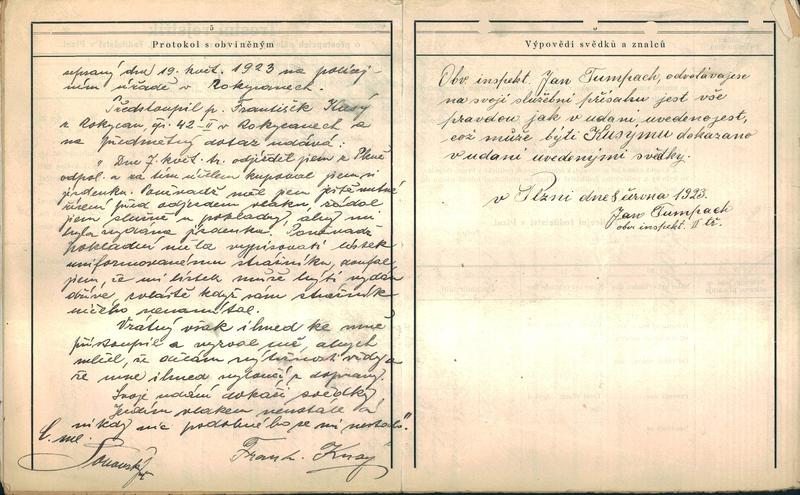 5
Protokol s obviněným
sepsaný dne 19. květ. 1923 na policej-
ním úřadě v Rokycanech.
Předstoupil p. František Kasý
z Rokycan, čp. 42-II v Rokycanech a
na předmětný dotaz udává:
„Dne 7. květ. t.r. odjížděl jsem z Plzně
odpol. a za tím účelem kupoval jsem si
jízdenku. Poněvadž měl jsem ještě nutné
řízení před odjezdem vlaku, žádal
jsem slušně u pokladny, aby mi
byla vydána jízdenka. Poněvadž
pokladní měla vypisovati lístek
uniformovanému strážníku, doufal
jsem, že mi lístek může býti vydán
dříve, zvláště když sám strážník
ničeho nenamítal.
Vrátný však ihned ke mně
přistoupil a vyzval mě, abych
mlčel, že dělám výtržnosti vždy a
že mne ihned vyloučí z dopravy.
Svoje udání dokáži svědky.
Jezdím vlakem neustále a
nikdy nic podobného se mi nestalo“.
Frant. Kasý
Výpovědi svědků a znalců
Obv. inspekt. Jan Tumpach, odvolávaje se
na svoji služební přísahu jest vše
pravdou jak v udání uvedeno jest,
což může býti Kasymu dokazano
v udaní uvedenými svědky.
v Plzni dne 8 června 1923.
Jan Tumpach
obv. inspekt. II tř.